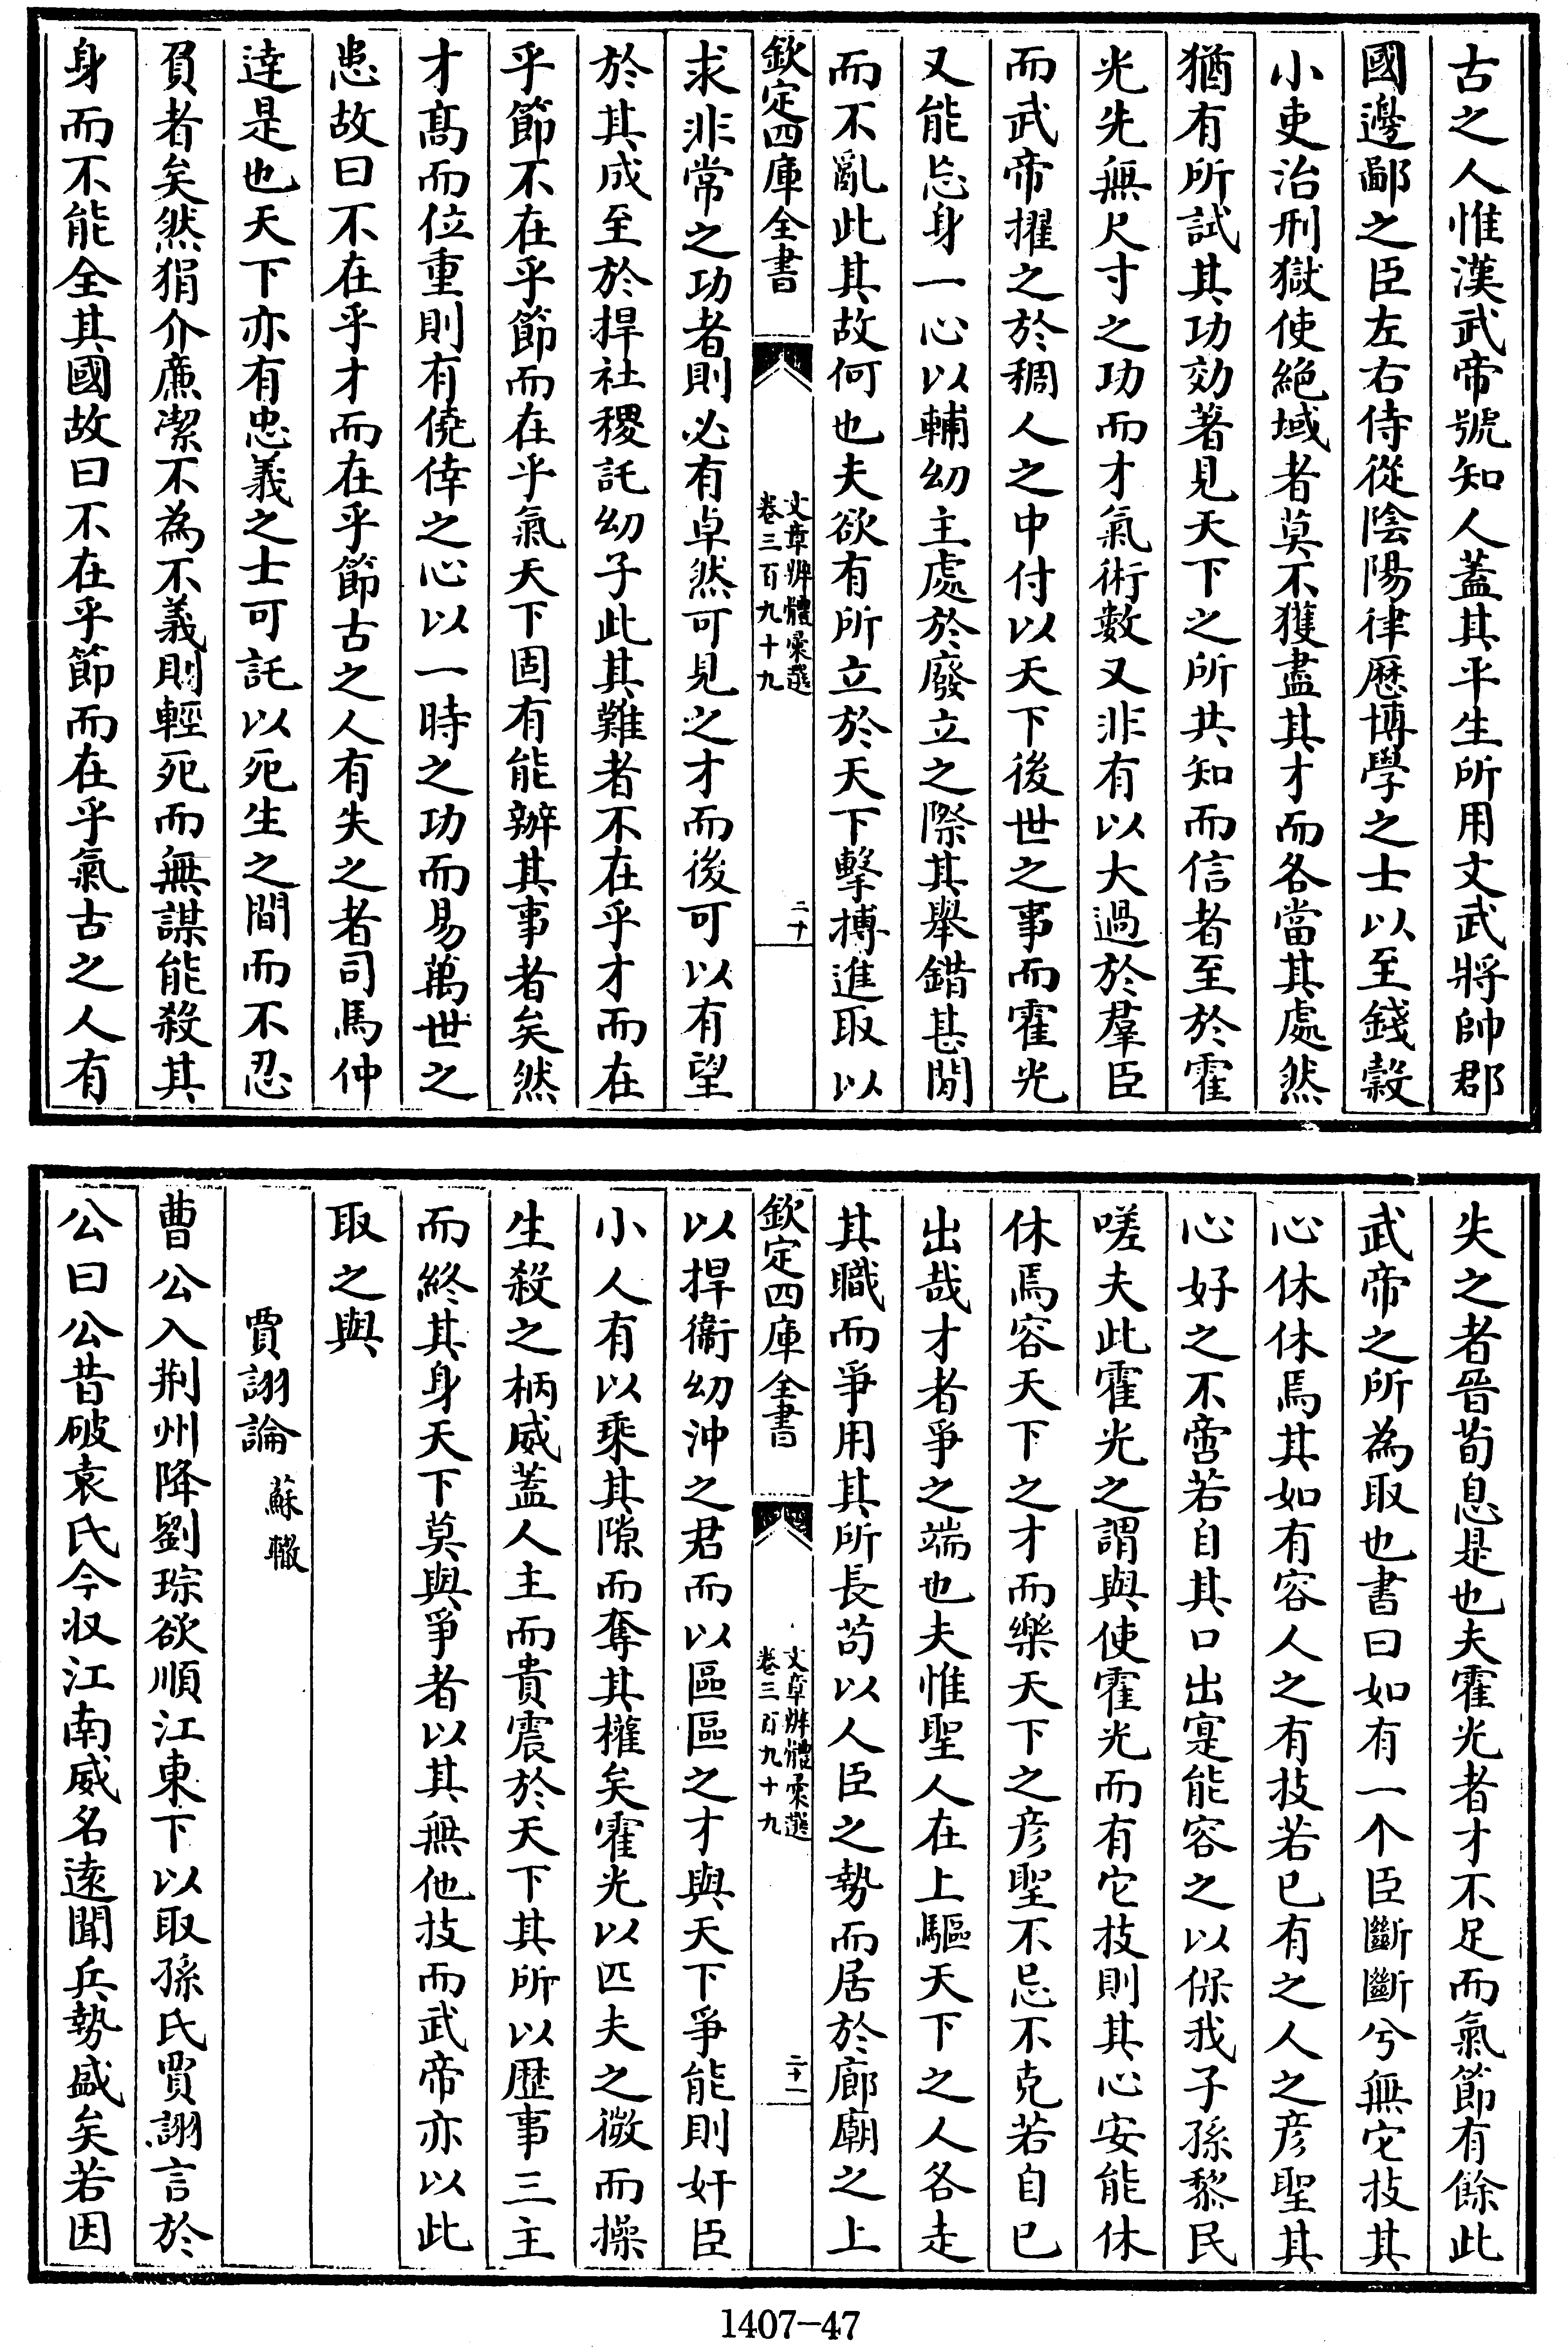 古之人惟漢武帝號知人蓋其平生所用文武將帥郡
國邊鄙之臣左右侍從陰陽律厯博學之士以至錢穀
小吏治刑獄使絶域者莫不獲盡其才而各當其處然
猶有所試其功効著見天下之所共知而信者至於霍
光先無尺寸之功而才氣術數又非有以大過於羣臣
而武帝擢之於稠人之中付以天下後世之事而霍光
又能忘身一心以輔幼主處於廢立之際其舉錯甚閒
而不亂此其故何也夫欲有所立於天下擊搏進取以
欽定四庫全書
文章辨體彙選
卷三百九十九
二十
求非常之功者則必有卓然可見之才而後可以有望
於其成至於捍社稷託幼子此其難者不在乎才而在
乎節不在乎節而在乎氣天下固有能辦其事者矣然
才髙而位重則有僥倖之心以一時之功而易萬世之
患故曰不在乎才而在乎節古之人有失之者司馬仲
達是也天下亦有忠義之士可託以死生之間而不忍
負者矣然狷介廉潔不為不義則輕死而無謀能殺其
身而不能全其國故曰不在乎節而在乎氣古之人有
失之者晉荀息是也夫霍光者才不足而氣節有餘此
武帝之所為取也書曰如有一个臣斷斷兮無它技其
心休休焉其如有容人之有技若已有之人之彦聖其
心好之不啻若自其口出寔能容之以保我子孫黎民
嗟夫此霍光之謂與使霍光而有它技則其心安能休
休焉容天下之才而樂天下之彦聖不忌不克若自已
出哉才者爭之端也夫惟聖人在上驅天下之人各走
其職而爭用其所長苟以人臣之勢而居於廊廟之上
欽定四庫全書
文章辨體彙選
卷三百九十九
二十一
以捍衞幼沖之君而以區區之才與天下爭能則奸臣
小人有以乘其隙而奪其權矣霍光以匹夫之微而操
生殺之柄威蓋人主而貴震於天下其所以歴事三主
而終其身天下莫與爭者以其無他技而武帝亦以此
取之與
賈詡論 蘇轍
曹公入荆州降劉琮欲順江東下以取孫氏賈詡言於
公曰公昔破袁氏今収江南威名遠聞兵勢盛矣若因
1407-47